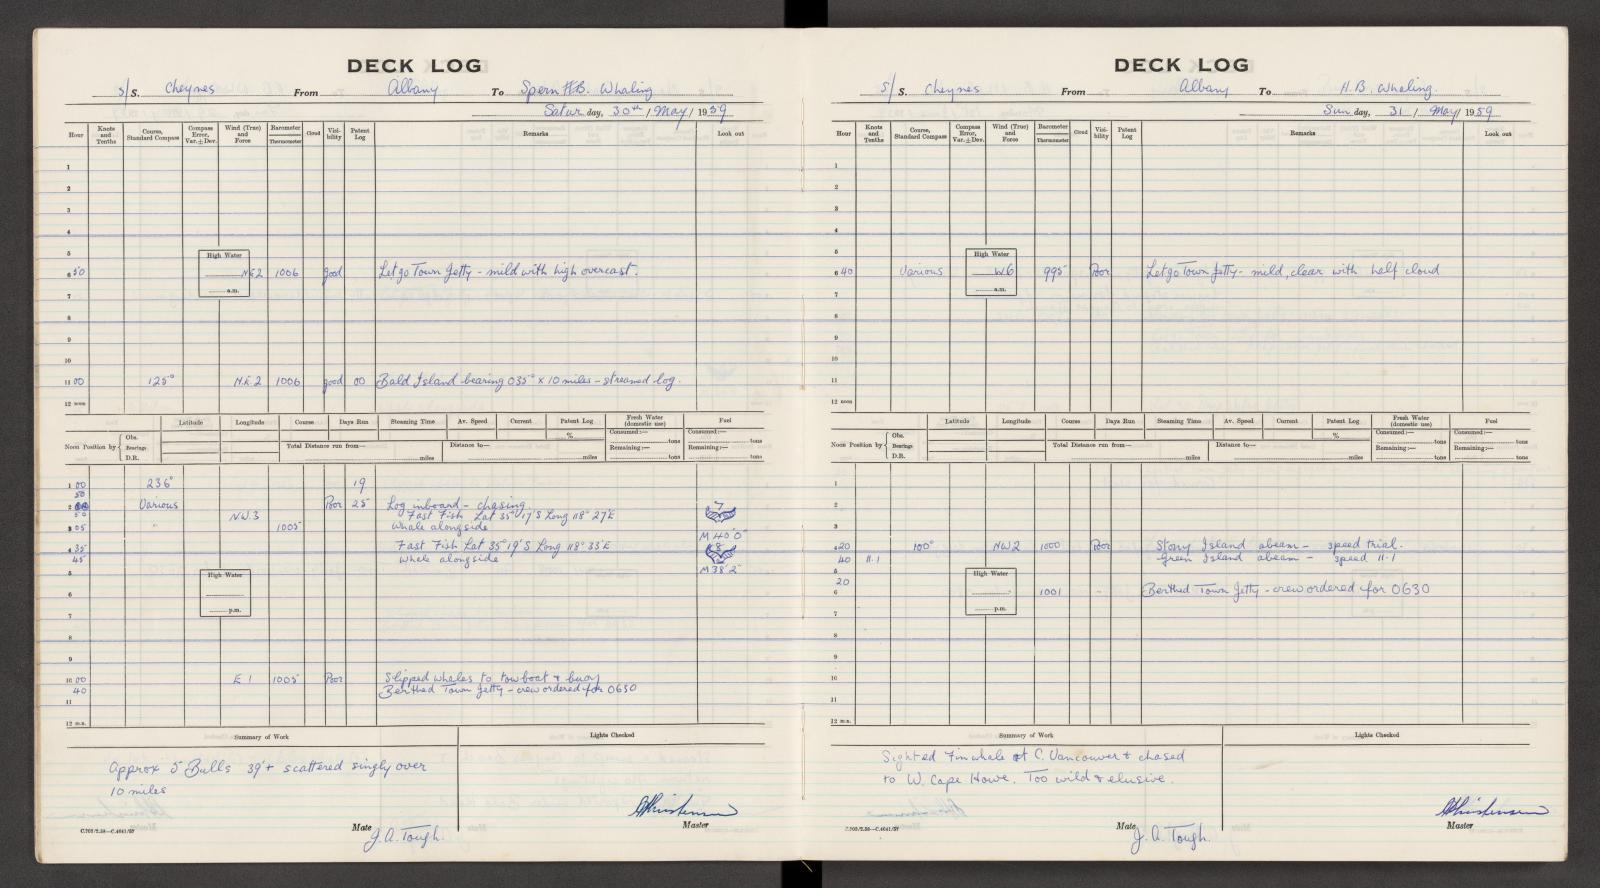 DECK LOG
s/S. Cheynes From Albany To Sperm H.B. Whaling
Saturday, 30th / May / 1959
Hour Knots and Tenths Course, Standard Compass Compass Error, Var.±Dev. Wind (True) and Force Barometer Thermometer Cloud Visibility Patent Log Remarks Look out
1
2
3
4
5
High Water
6 50 N.E 2 1006 good Let go Town Jetty - mild with high overcast.
a.m.
7
8
9
10
11 00 125° N.E. 2 1006 good 00 Bald Island bearing 035° x 10 miles - streamed log.
12 noon
Latitude Longitude Course Days Run Steaming Time Av. Speed Current Patent Log Fresh Water (domestic use) Fuel
% Consumed:— tons Consumed:— tons
Noon Position by Obs. Bearings D.R. Total Distance run from— miles Distance to— miles Remaining:— tons Remaining:— tons
1 00 236° 19
50
2 Various Poor 25 Log inboard - chasing 7
50 NW.3 Fast Fish Lat 35°17'S Long 118° 27'E
3 05 " 1005 Whale alongside M 40'0"
4 35 Fast Fish Lat 35°19'S Long 118° 33'E 8
45 Whale alongside
5 M 38'2"
High Water
6
p.m.
7
8
9
10 00 E 1 1005 Poor Slipped whales to towboat & buoy
40 Berthed Town Jetty - crew ordered for 0630
11
12 m.n.
Summary of Work Lights Checked
Approx 5 Bulls 39'+ scattered singly over
10 miles
Master
C.702/2.58—C.4041/57
Mate J.A. Tough.
DECK LOG
S/S. Cheynes From Albany To H.B. Whaling.
Sunday, 31 / May / 1959
Hour Knots and Tenths Course, Standard Compass Compass Error, Var.±Dev. Wind (True) and Force Barometer Thermometer Cloud Visibility Patent Log Remarks Look out
1
2
3
4
5
High Water
6 40 Various W6 995 Poor Let go Town Jetty - mild, clear with half cloud
a.m.
7
8
9
10
11
12 noon
Latitude Longitude Course Days Run Steaming Time Av. Speed Current Patent Log Fresh Water (domestic use) Fuel
% Consumed:— tons Consumed:— tons
Noon Position by Obs. Bearings D.R. Total Distance run from— miles Distance to— miles Remaining:— tons Remaining:— tons
1
2
3
4 20 100° NW2 1000 Poor Stony Island abeam - speed trial.
40 11.1 Green Island abeam - speed 11.1
5
High Water
20
6 1001 - Berthed Town Jetty - crew ordered for 0630
p.m.
7
8
9
10
11
12 m.n.
Summary of Work Lights Checked
Sighted Finwhale at C. Vancouver & chased
to W. Cape Howe. Too wild & elusive.
Master
C.702/2.58—C.4041/57
Mate J. A. Tough.